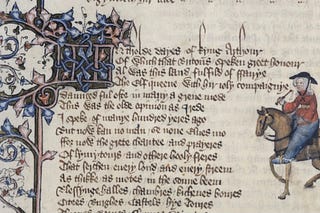 IN tholde dayes of kyng Arthour
Of which that Britons speken greet honour
Al was this land fulfild of ffairye
The Elf queene with hir ioly compaignye
Daunced ful ofte in many a grene mede
This was the olde opinion as I rede
I speke of manye hundred yeres ago
But now kan no man se none Elues mo
ffor now the grete charitee and prayeres
Of lymytours and othere hooly freres
That serchen euery lond and euery streem
As thikke as motes in the sonne beem
Blessynge halles chambres kichenes boures
Citees Burghes Castels hye Toures